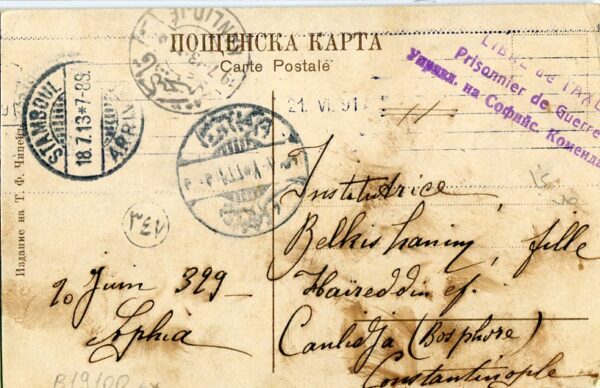 ПОЩЕНСКА КАРТА
Carte Postale
LIBRE de TAXE
Prisonnier de Guerre
Управл. на Софийс. Коменда
STAMBOUL
18.7.13*7-8S.
21. VI. 91
Издание на Т. Ф. Чипев
٣٤٨
20 Juin 329
Sophia
Institutrice
Belkis hanım, fille
Haïreddin ef.
Canlidja (Bosphore)
Constantinople
B1910P